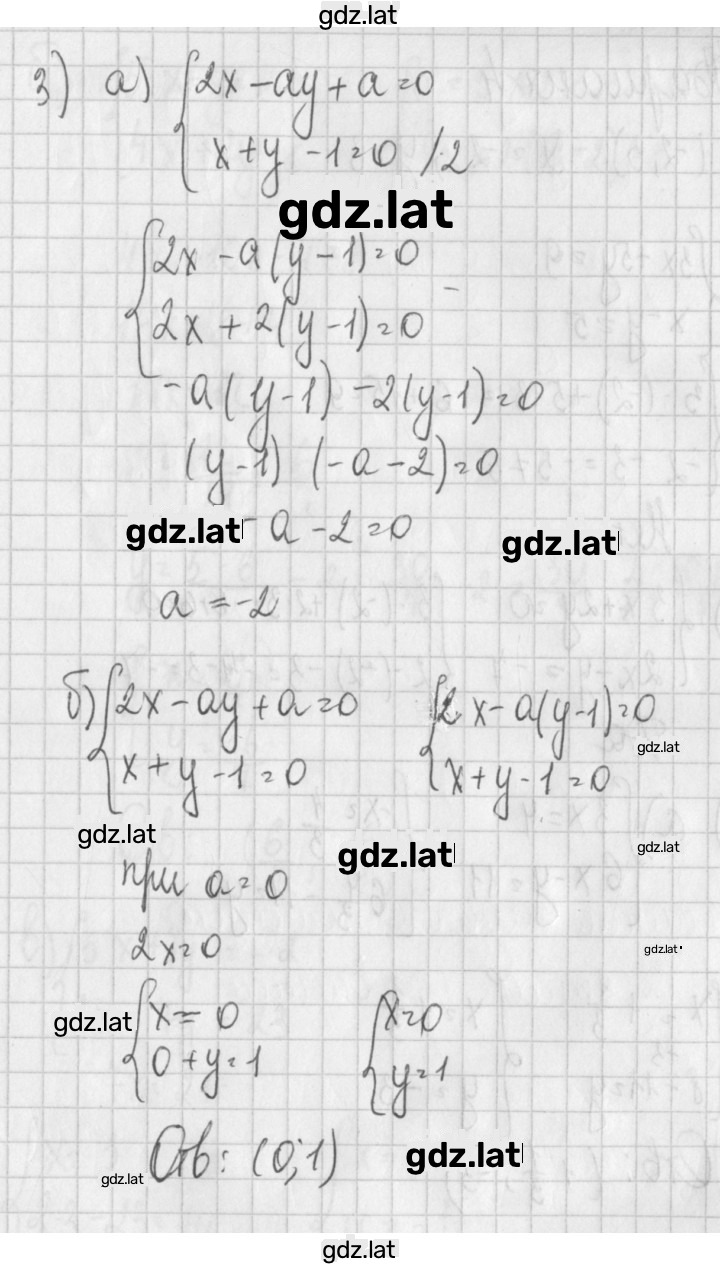 gdz.lat
3) а) { 2x - ay + a = 0
x + y - 1 = 0 /·2
gdz.lat
{ 2x - a(y - 1) = 0
-
2x + 2(y - 1) = 0
-a(y - 1) - 2(y - 1) = 0
(y - 1) (-a - 2) = 0
gdz.lat - a - 2 = 0
gdz.lat
a = -2
б) { 2x - ay + a = 0 { 2x - a(y - 1) = 0
gdz.lat
x + y - 1 = 0 x + y - 1 = 0
gdz.lat
gdz.lat
gdz.lat
при a = 0
2x = 0
gdz.lat
gdz.lat { x = 0 { x = 0
0 + y = 1 y = 1
Отв: (0; 1)
gdz.lat
gdz.lat
gdz.lat